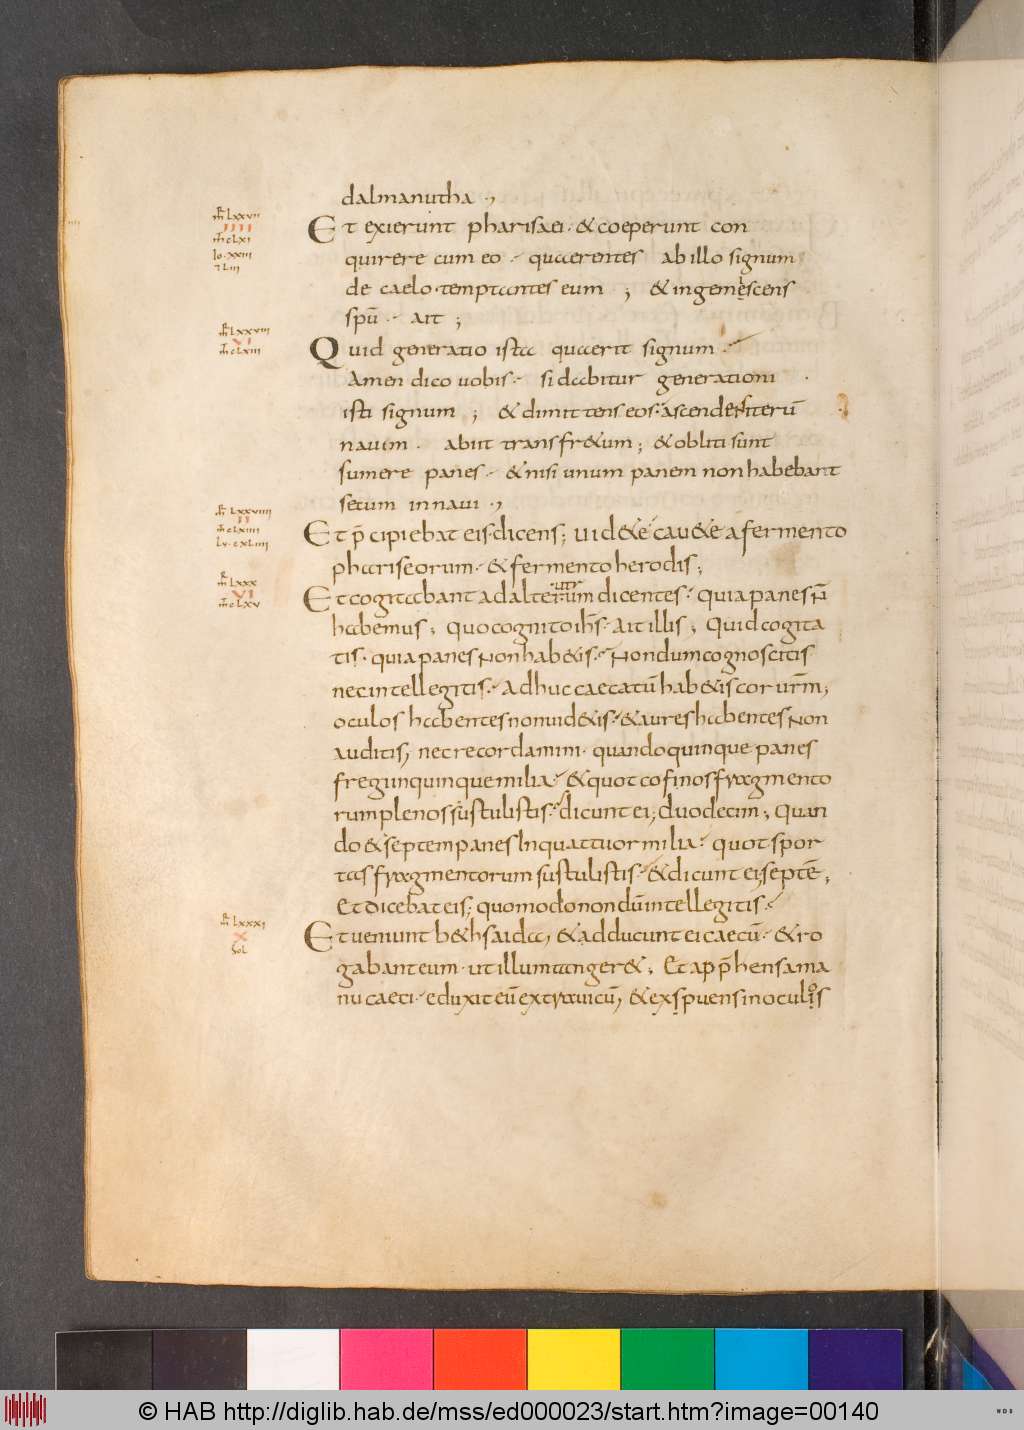 dalmanutha ·,
mr̄ Lxxvii
Et exierunt pharisaei · & coeperunt con
IIII
mt̄ cLxi
quirere cum eo · quaerentes ab illo signum
Io · xxiii
7 Liii
de caelo · temptantes eum ; & ingemescens
spū · ait ;
mr̄ Lxxviii
Quid generatio ista quaerit signum ·
VI
mt̄ cLxiii
Amen dico uobis · si dabitur generationi
isti signum ; & dimittens eos · ascendens iterū
nauem · abiit trans fr&um ; & obliti sunt
sumere panes · & nisi unum panem non habebant
secum in naui ·,
mr̄ Lxxviiii
II
Et p̄cipiebat eis dicens ; uid&e cau&e a fermento
mt̄ cLxiiii
Lu · cxLiiii
phariseorum · & fermento herodis ;
mr̄ Lxxx
VI
Et cogitabant ad alterutrum dicentes · quia panes n̄
mt̄ cLxv
habemus ; quo cognito ihs̄ · ait illis ; Quid cogita
tis · quia panes non hab&is · Nondum cognoscitis
nec intellegitis · Adhuc caecatū hab&is cor urm̄ ;
oculos habentes non uid&is · & aures habentes non
auditis, nec recordamini · quando quinque panes
fregi in quinque milia · & quot cofinos fragmento
rum plenos sustulistis · dicunt ei ; duodecim ; Quan
do & septem panes In quattuor milia · quot spor
tas fragmentorum sustulistis · & dicunt ei ; septē ;
Et dicebat eis ; quomodo nondū intellegitis ·
mr̄ Lxxxi
Et ueniunt b&hsaida, & adducunt ei caecū · & ro
X
sol
gabant eum · ut illum tanger& ; Et app̄hensa ma
nu caeci · eduxit eū extra uicū, & exspuens in oculis
© HAB http://diglib.hab.de/mss/ed000023/start.htm?image=00140